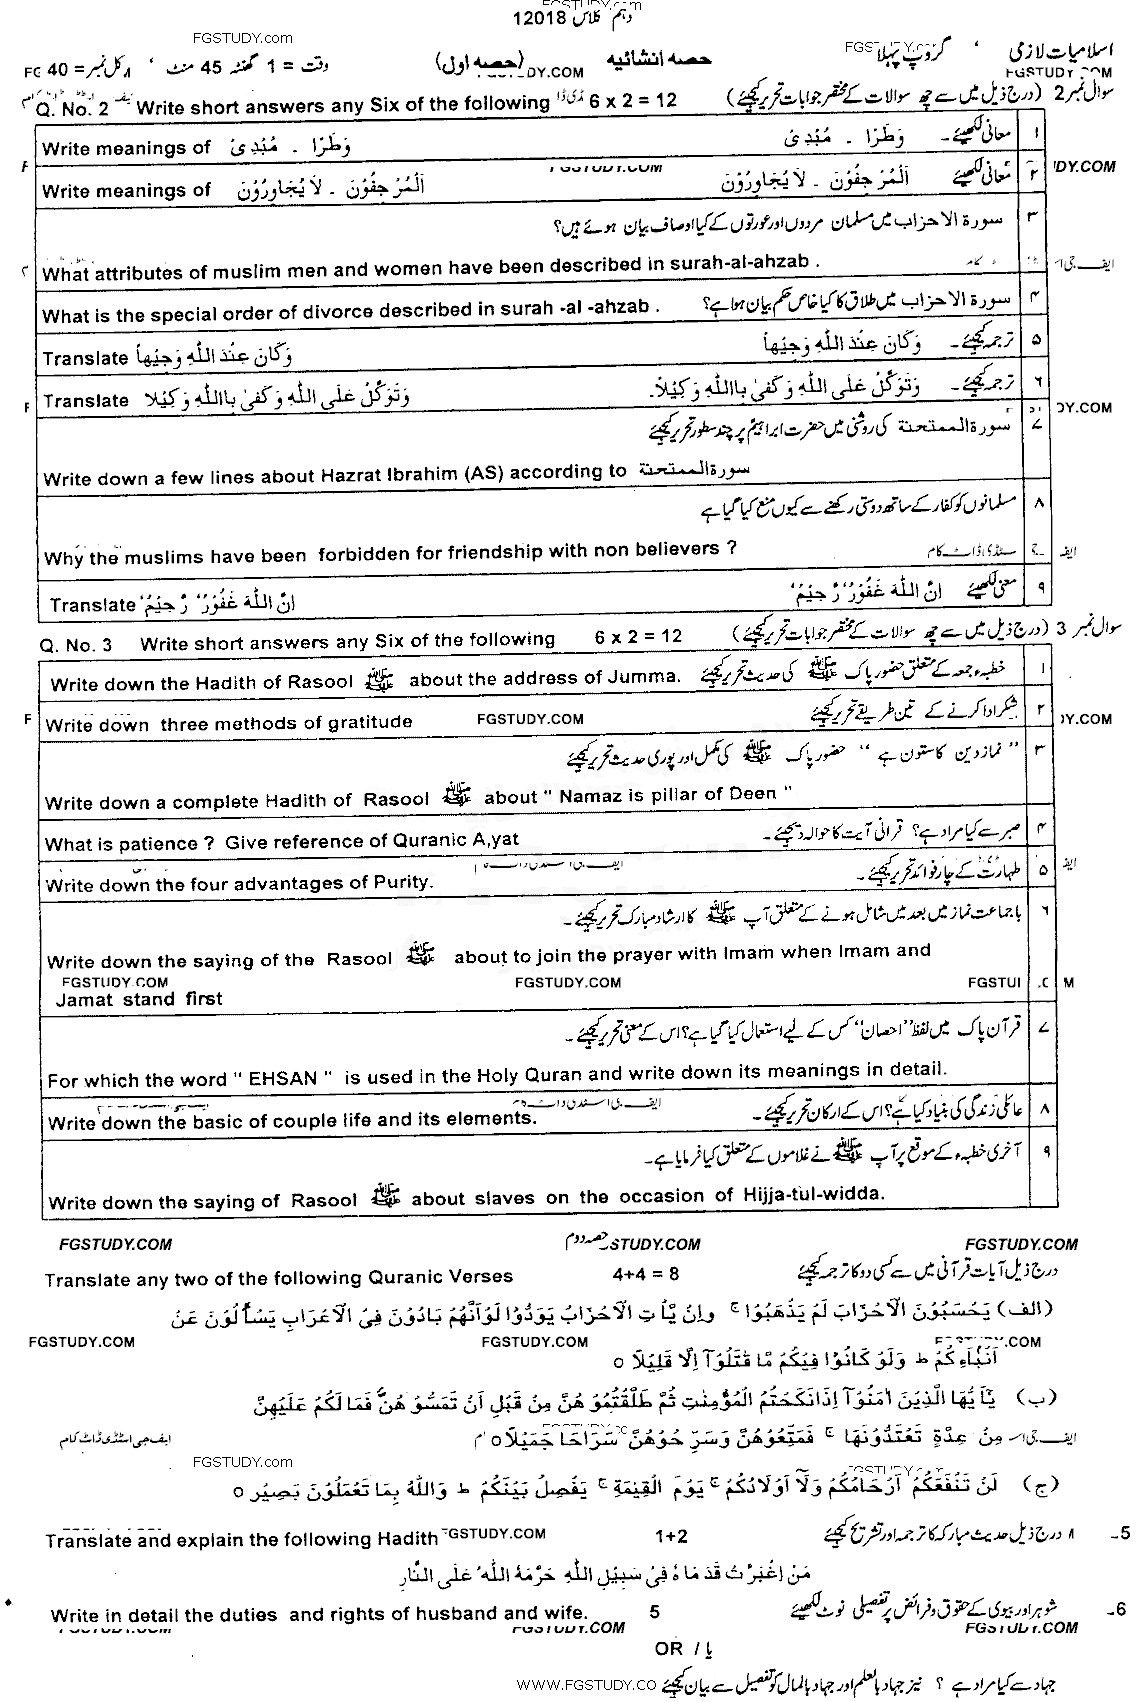 FGSTUDY.com
دہم کلاس 12018
FGSTUDY.com
اسلامیات لازمی ، گروپ پہلا حصہ انشائیہ (حصہ اول) وقت = 1 گھنٹہ 45 منٹ ، کل نمبر = 40
سوال نمبر 2 (درج ذیل میں سے چھ سوالات کے مختصر جوابات تحریر کیجئے)
Q. No. 2 Write short answers any Six of the following 6 x 2 = 12
۱ معانی لکھیئے۔ وَطَرًا ۔ مُبْدِیْ
Write meanings of وَطَرًا ۔ مُبْدِیْ
FGSTUDY.COM
۲ معانی لکھیئے اَلْمُرْجِفُوْنَ ۔ لَا یُجَاوِرُوْنَ
Write meanings of اَلْمُرْجِفُوْنَ ۔ لَا یُجَاوِرُوْنَ
۳ سورۃ الاحزاب میں مسلمان مردوں اور عورتوں کے کیا اوصاف بیان ہوئے ہیں؟
What attributes of muslim men and women have been described in surah-al-ahzab .
۴ سورۃ الاحزاب میں طلاق کا کیا خاص حکم بیان ہوا ہے؟
What is the special order of divorce described in surah -al -ahzab .
۵ ترجمہ کیجئے۔ وَکَانَ عِنْدَ اللّٰہِ وَجِیْھاً
Translate وَکَانَ عِنْدَ اللّٰہِ وَجِیْھاً
۶ ترجمہ کیجئے۔ وَتَوَکَّلْ عَلَی اللّٰہِ وَکَفٰی بِااللّٰہِ وَکِیْلاً۔
Translate وَتَوَکَّلْ عَلَی اللّٰہِ وَکَفٰی بِااللّٰہِ وَکِیْلا
۷ سورۃ الممتحنۃ کی روشنی میں حضرت ابراہیمؑ پر چند سطور تحریر کیجئے
Write down a few lines about Hazrat Ibrahim (AS) according to سورۃ الممتحنۃ
۸ مسلمانوں کو کفار کے ساتھ دوستی رکھنے سے کیوں منع کیا گیا ہے
Why the muslims have been forbidden for friendship with non believers ?
۹ معنی لکھیئے اِنَّ اللّٰہَ غَفُوْرٌ رَّحِیْمٌ
Translate اِنَّ اللّٰہَ غَفُوْرٌ رَّحِیْمٌ
سوال نمبر 3 (درج ذیل میں سے چھ سوالات کے مختصر جوابات تحریر کیجئے)
Q. No. 3 Write short answers any Six of the following 6 x 2 = 12
۱ خطبہء جمعہ کے متعلق حضور پاک ﷺ کی حدیث تحریر کیجئے
Write down the Hadith of Rasool ﷺ about the address of Jumma.
۲ شکر ادا کرنے کے تین طریقے تحریر کیجئے
Write down three methods of gratitude FGSTUDY.COM
۳ "نماز دین کا ستون ہے" حضور پاک ﷺ کی مکمل اور پوری حدیث تحریر کیجئے
Write down a complete Hadith of Rasool ﷺ about " Namaz is pillar of Deen "
۴ صبر سے کیا مراد ہے؟ قرانی آیت کا حوالہ دیجئے۔
What is patience ? Give reference of Quranic A,yat
۵ طہارت کے چار فوائد تحریر کیجئے۔
Write down the four advantages of Purity.
۶ با جماعت نماز میں بعد میں شامل ہونے کے متعلق آپ ﷺ کا ارشاد مبارک تحریر کیجئے۔
Write down the saying of the Rasool ﷺ about to join the prayer with Imam when Imam and
FGSTUDY.COM FGSTUDY.COM
Jamat stand first
۷ قرآن پاک میں لفظ "احصان" کس کے لیے استعمال کیا گیا ہے؟ اس کے معنی تحریر کیجئے۔
For which the word " EHSAN " is used in the Holy Quran and write down its meanings in detail.
۸ عائلی زندگی کی بنیاد کیا ہے؟ اس کے ارکان تحریر کیجئے۔
Write down the basic of couple life and its elements.
۹ آخری خطبہء کے موقع پر آپ ﷺ نے غلاموں کے متعلق کیا فرمایا ہے۔
Write down the saying of Rasool ﷺ about slaves on the occasion of Hijja-tul-widda.
FGSTUDY.COM حصہ دوم STUDY.COM FGSTUDY.COM
درج ذیل آیات قرآنی میں سے کسی دو کا ترجمہ کیجئے
Translate any two of the following Quranic Verses 4+4 = 8
(الف) یَحْسَبُوْنَ الْاَحْزَابَ لَمْ یَذْھَبُوْا ۚ وَاِنْ یَّاْتِ الْاَحْزَابُ یَوَدُّوْا لَوْاَنَّھُمْ بَادُوْنَ فِی الْاَعْرَابِ یَسْاَلُوْنَ عَنْ
FGSTUDY.COM FGSTUDY.COM
اَنْبَآءِکُمْ ط وَلَوْ کَانُوْا فِیْکُمْ مَّا قٰتَلُوْۤا اِلَّا قَلِیْلًا ○
(ب) یٰۤاَیُّھَا الَّذِیْنَ اٰمَنُوْۤا اِذَانَکَحْتُمُ الْمُؤْمِنٰتِ ثُمَّ طَلَّقْتُمُوْ ھُنَّ مِنْ قَبْلِ اَنْ تَمَسُّوْ ھُنَّ فَمَا لَکُمْ عَلَیْھِنَّ
مِنْ عِدَّۃٍ تَعْتَدُّوْنَھَا ۚ فَمَتِّعُوْھُنَّ وَسَرِّ حُوْھُنَّ سَرَاحًا جَمِیْلًا ○
ایف جی اسٹڈی ڈاٹ کام
FGSTUDY.com
(ج) لَنْ تَنْفَعَکُمْ اَرْحَامُکُمْ وَلَاۤ اَوْلَادُکُمْ ۚ یَوْمَ الْقِیٰمَۃِ ۚ یَفْصِلُ بَیْنَکُمْ ط وَاللّٰہُ بِمَا تَعْمَلُوْنَ بَصِیْرٌ ○
5- درج ذیل حدیث مبارکہ کا ترجمہ اور تشریح کیجئے
Translate and explain the following Hadith GSTUDY.COM 1+2
مَنِ اغْبَرَّتْ قَدَمَاہُ فِیْ سَبِیْلِ اللّٰہِ حَرَّمَہُ اللّٰہُ عَلَی النَّارِ
6- شوہر اور بیوی کے حقوق و فرائض پر تفصیلی نوٹ لکھیئے
Write in detail the duties and rights of husband and wife. 5
FGSTUDY.COM FGSTUDY.COM FGSTUDY.COM
OR / یا
جہاد سے کیا مراد ہے ؟ نیز جہاد بالعلم اور جہاد بالمال کو تفصیل سے بیان کیجئے
WWW.FGSTUDY.CO